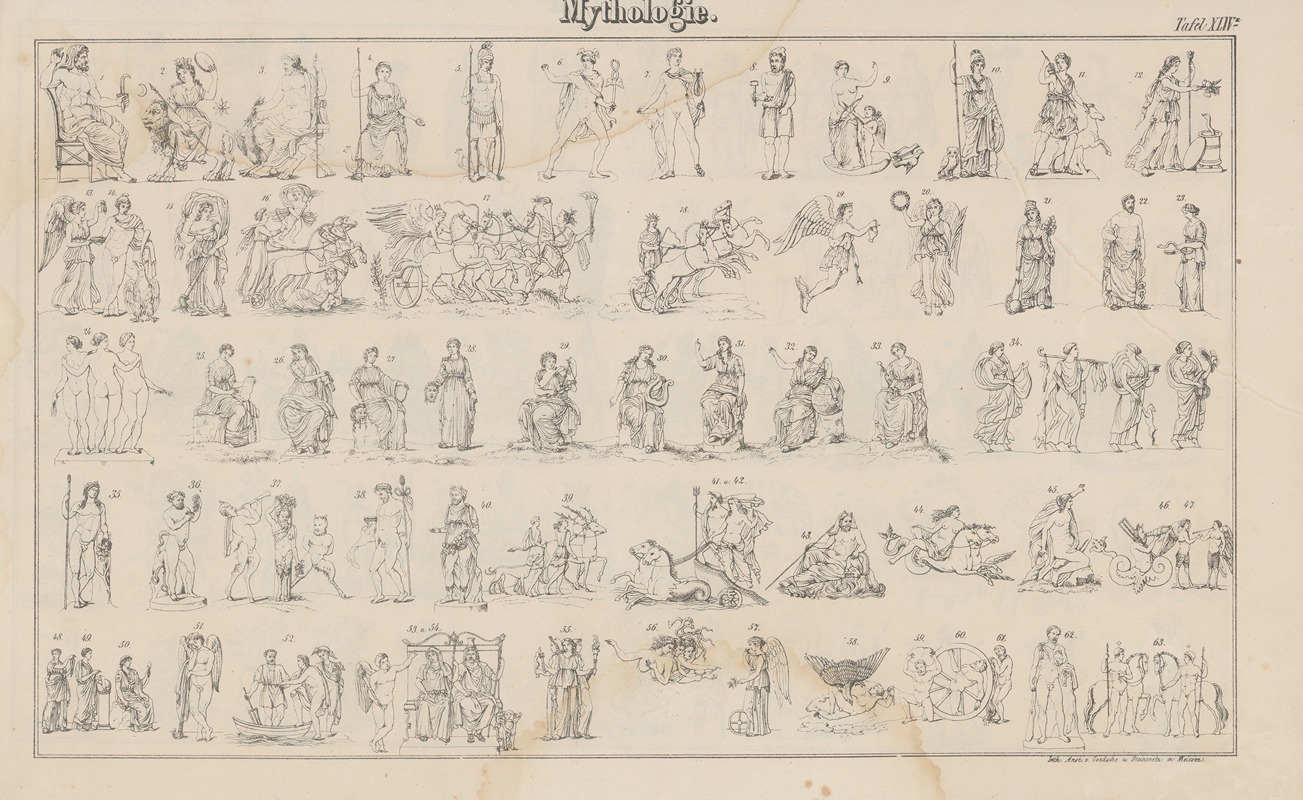 Mythologie.
Tafel XLIV.a
1. 2. 3. 4. 5. 6. 7. 8. 9. 10. 11. 12.
13. 14. 15. 16. 17. 18. 19. 20. 21. 22. 23.
24. 25. 26. 27. 28. 29. 30. 31. 32. 33. 34.
35. 36. 37. 38. 40. 39. 41. u. 42. 43. 44. 45. 46. 47.
48. 49. 50. 51. 52. 53. u. 54. 55. 56. 57. 58. 59. 60. 61. 62. 63.
Lith. Anst. v. Goedsche u. Steinmetz in Meissen.